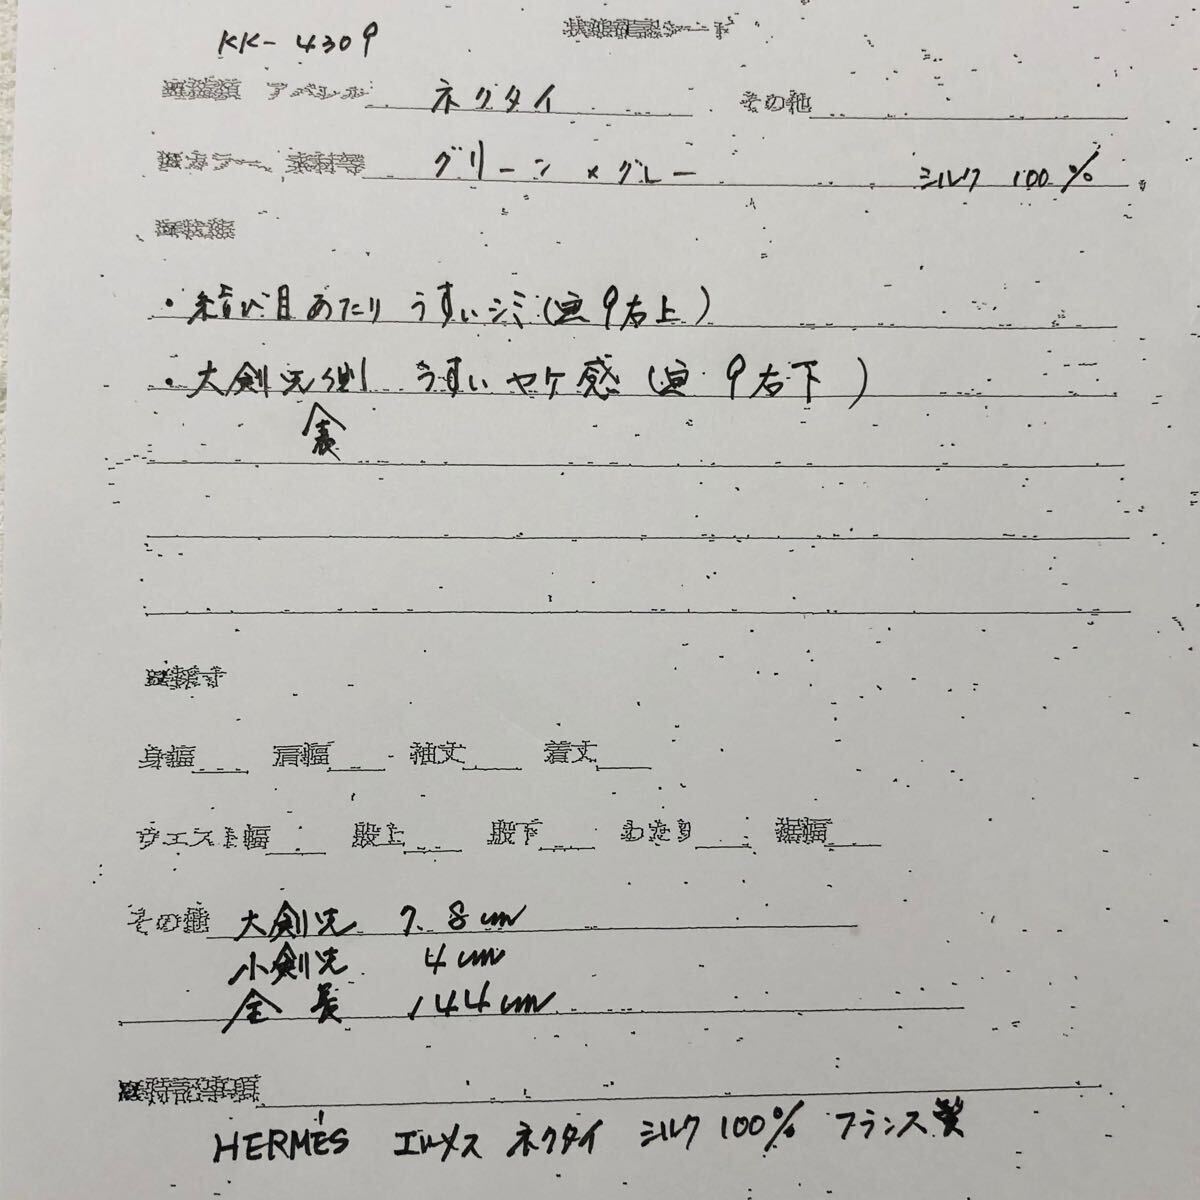 KK-4309
状態確認シート
アパレル ネクタイ その他
カラー、素材等 グリーン×グレー シルク 100%
・結び目あたり うすいシミ(画9右上)
・大剣先側 うすいヤケ感(画9右下)
表
身幅 肩幅 袖丈 着丈
ウエスト幅 股上 股下 わたり 裾幅
その他 大剣先 7.8cm
小剣先 4cm
全長 144cm
特記事項
HERMÈS エルメス ネクタイ シルク 100% フランス製